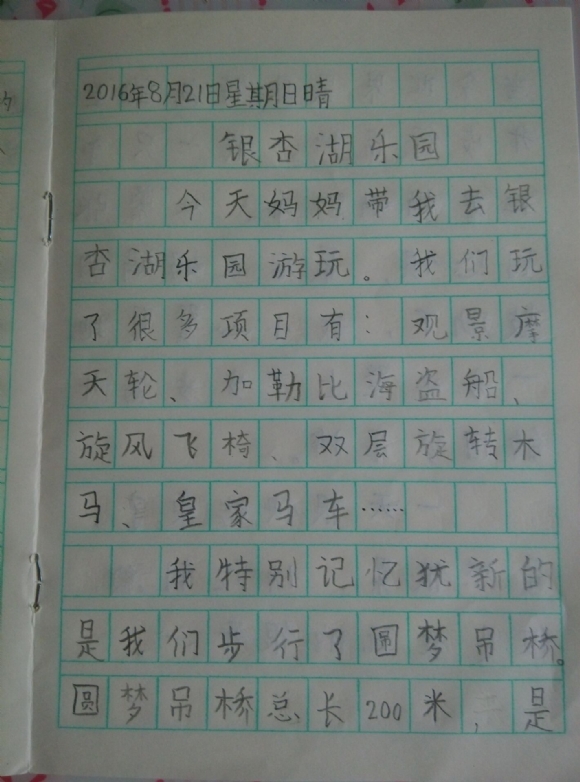 2016年8月21日星期日晴
银杏湖乐园
今天妈妈带我去银
杏湖乐园游玩。我们玩
了很多项目有：观景摩
天轮、加勒比海盗船、
旋风飞椅、双层旋转木
马、皇家马车……
我特别记忆犹新的
是我们步行了圆梦吊桥。
圆梦吊桥总长200米，是